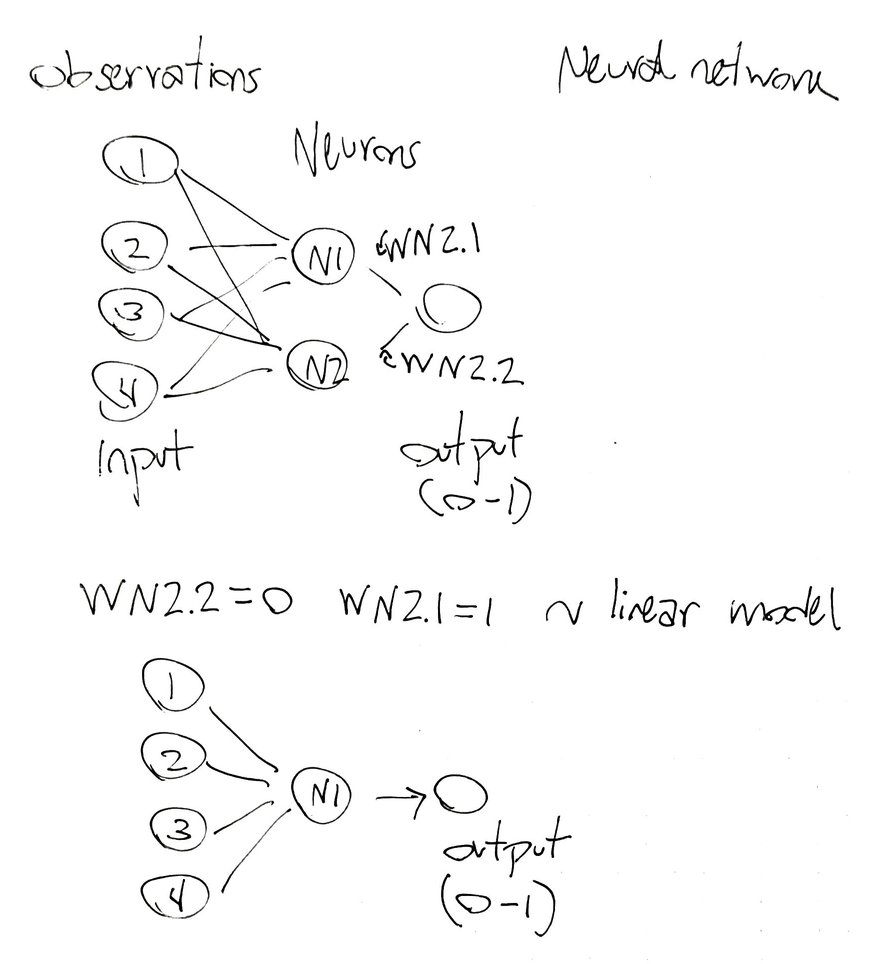 Observations
Neural network
Neurons
1
2
3
4
N1
N2
WN2.1
WN2.2
Input
output
(0-1)
WN2.2=0 WN2.1=1 ~ linear model
1
2
3
4
N1
output
(0-1)